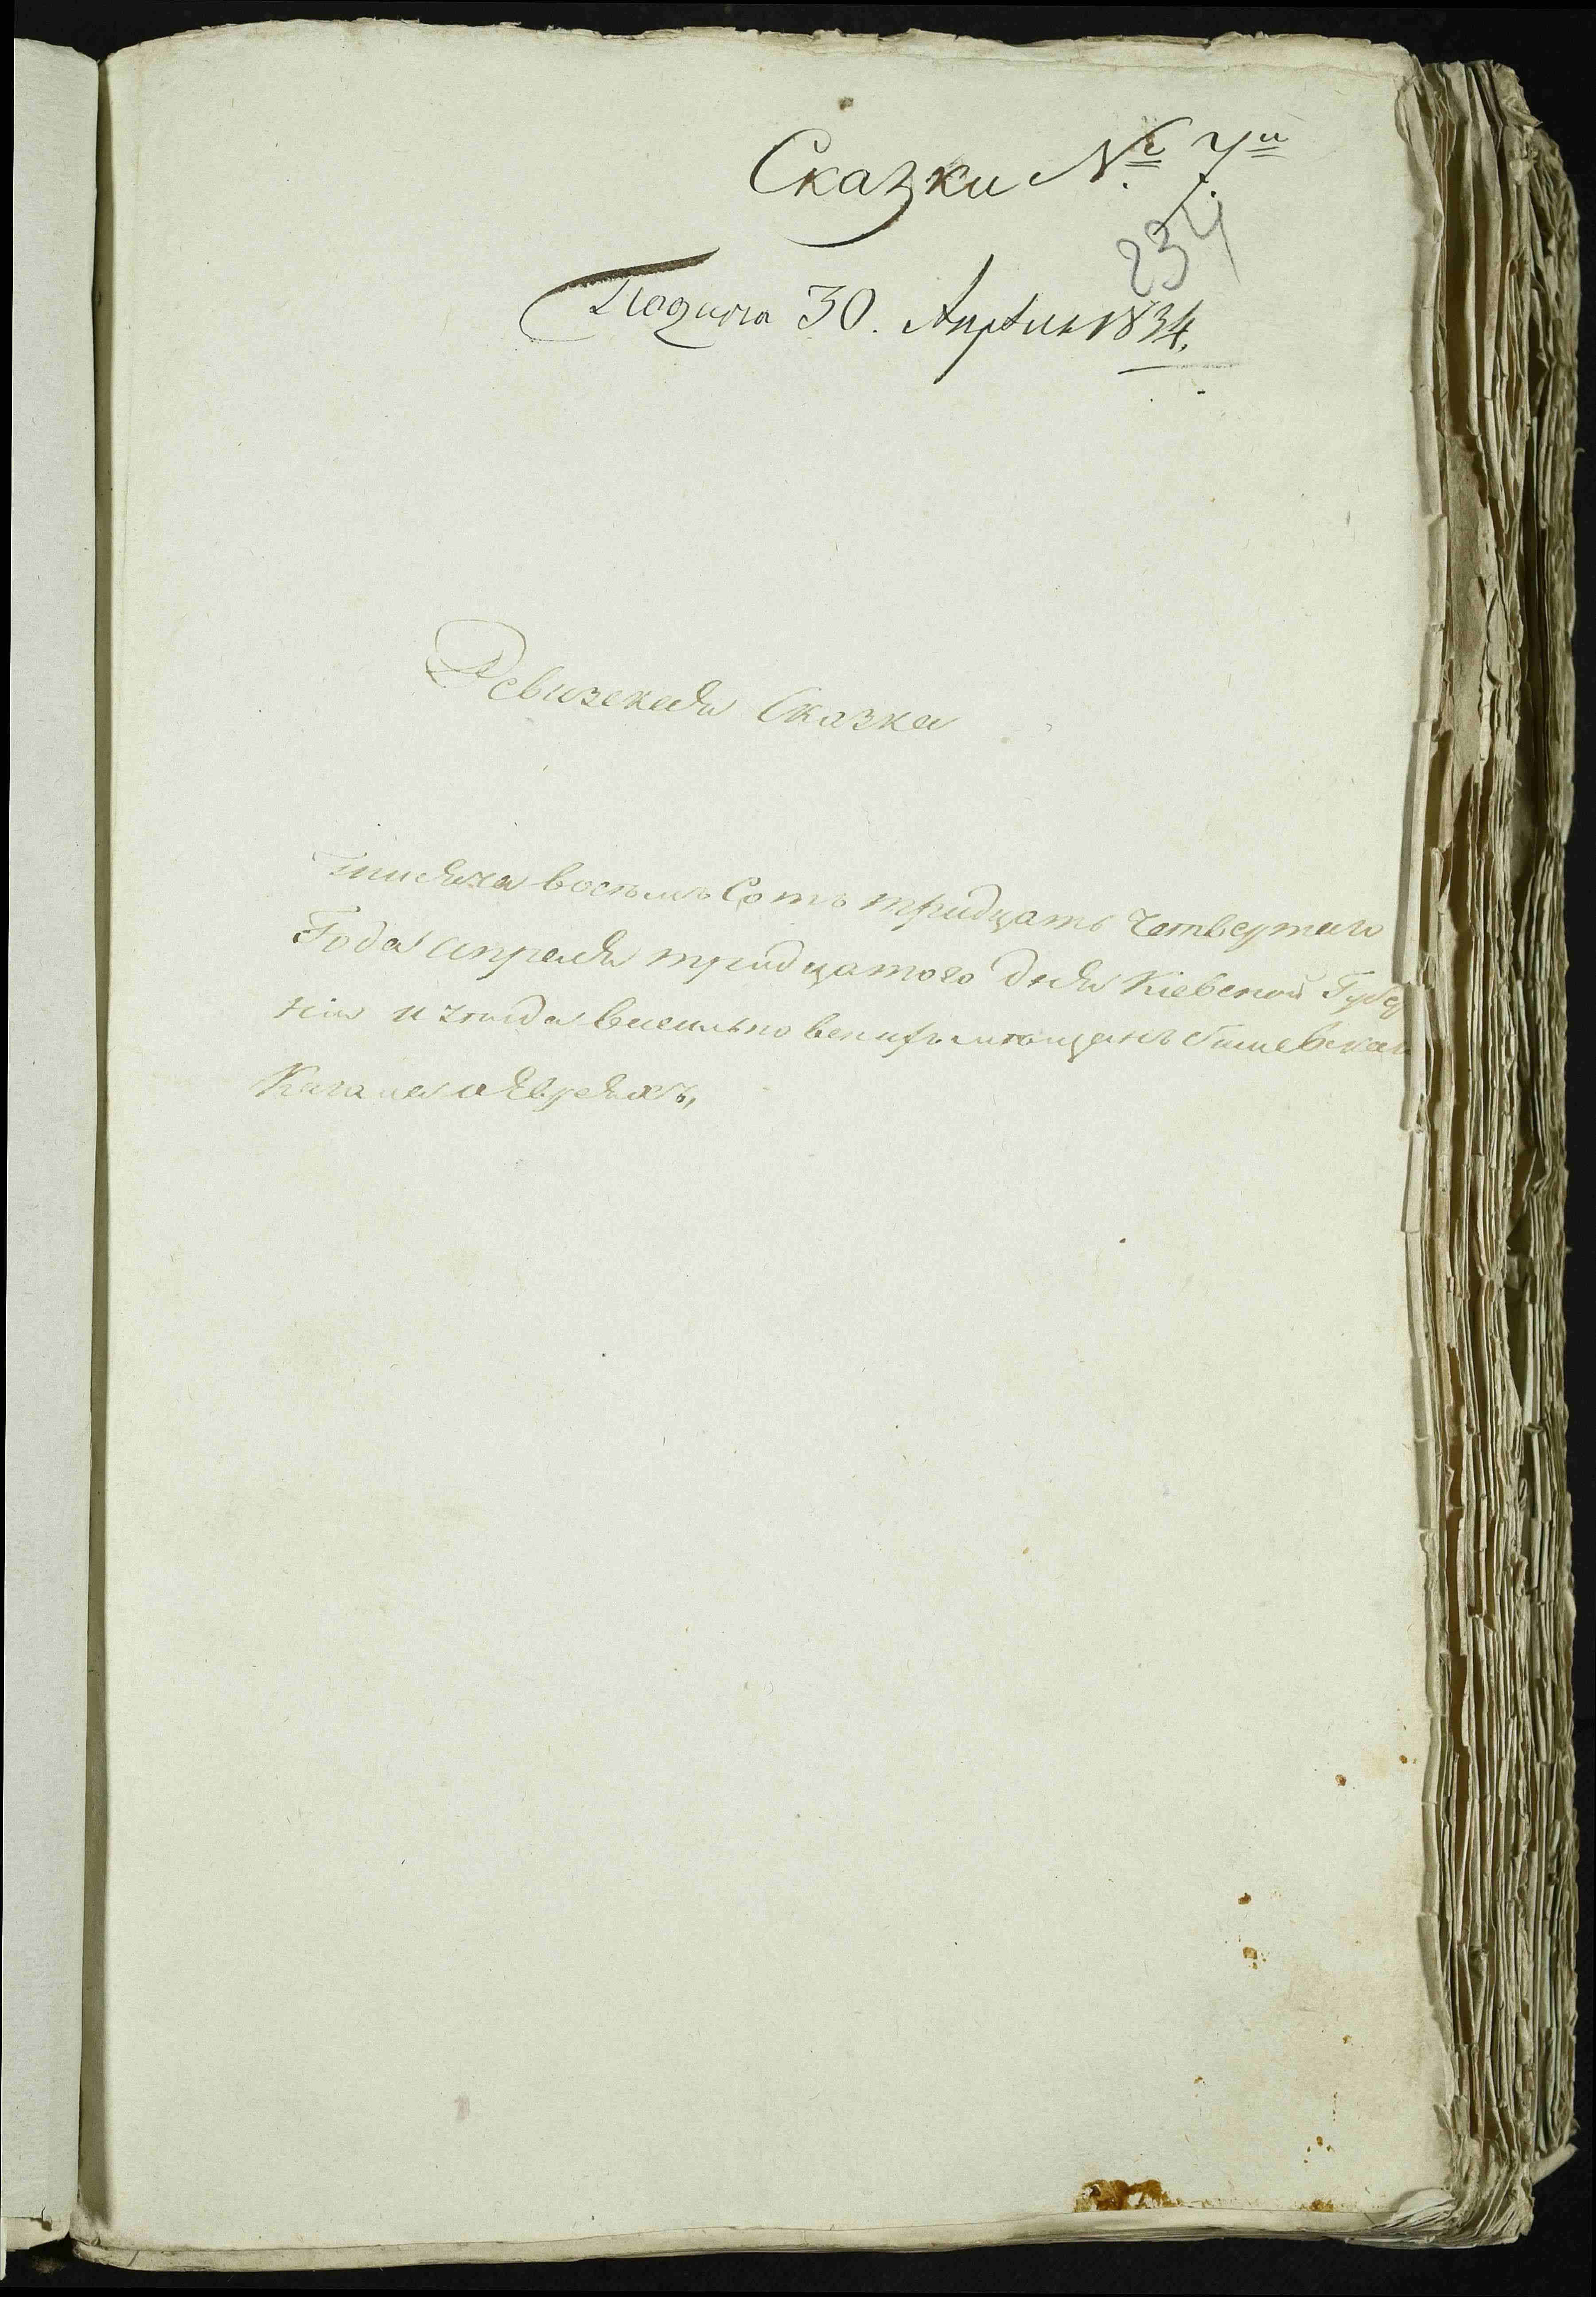 Сказки №: 7й
234
Подана 30. Апреля 1834.
Ревизская Сказка
Тысяча восемь Сотъ тридцать Четвертаго
Года апреля тридцатого дня Кіевской Губер
ніи и уезда
Кагала о Евреяхъ,